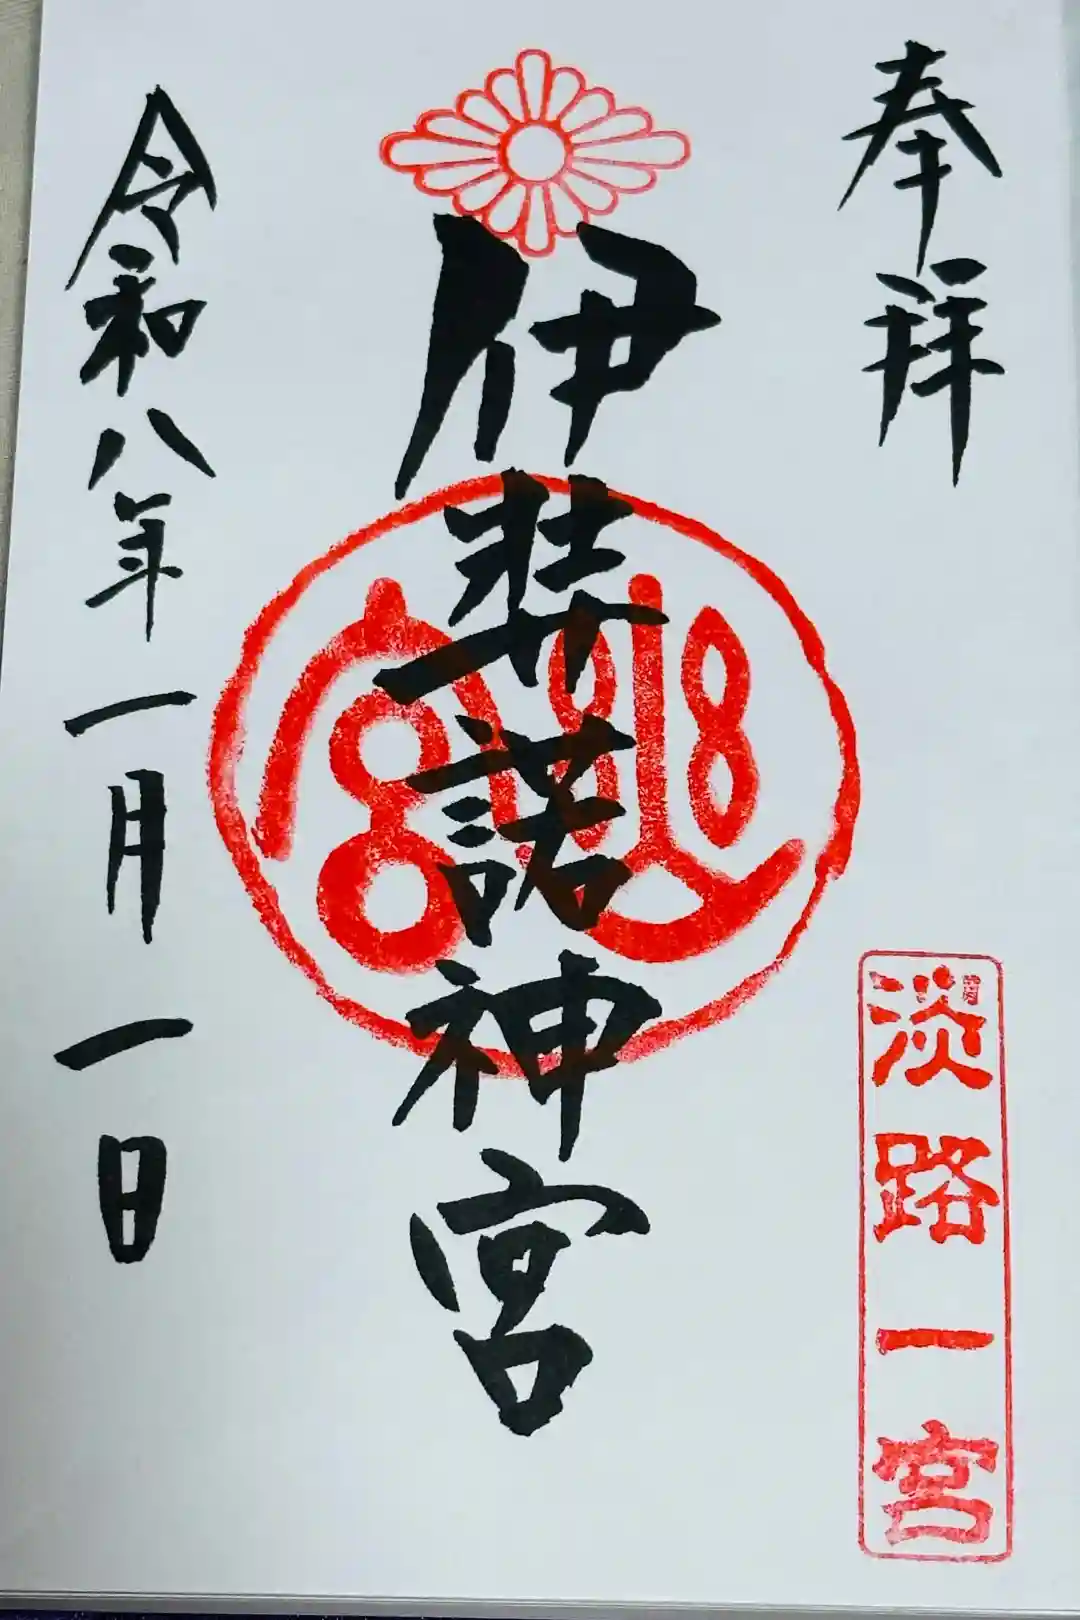 奉拜
淡路一宮
伊弉諾神宮
令和八年一月一日